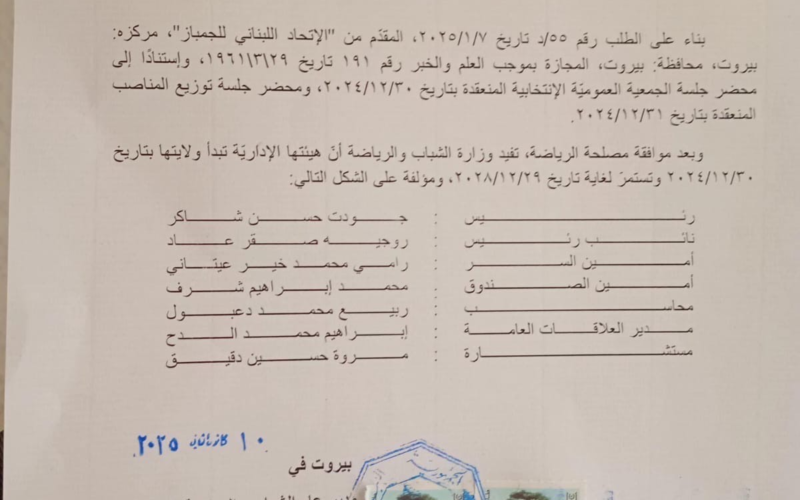 بناء على الطلب رقم ٥٥/د تاريخ ٢٠٢٥/١/٧، المقدّم من "الإتحاد اللبناني للجمباز"، مركزه:
بيروت، محافظة: بيروت، المجازة بموجب العلم والخبر رقم ١٩١ تاريخ ١٩٦١\٣\٢٩، وإستنادًا إلى
محضر جلسة الجمعية العموميّة الإنتخابية المنعقدة بتاريخ ٢٠٢٤/١٢/٣٠، ومحضر جلسة توزيع المناصب
المنعقدة بتاريخ ٢٠٢٤/١٢/٣١.
وبعد موافقة مصلحة الرياضة، تفيد وزارة الشباب والرياضة أنّ هيئتها الإداريّة تبدأ ولايتها بتاريخ
٢٠٢٤/١٢/٣٠ وتستمرّ لغاية تاريخ ٢٠٢٨/١٢/٢٩، ومؤلفة على الشكل التالي:
رئيس : جودت حسن شاكر
نائب رئيس : روجيه صقر عاد
أمين السر : رامي محمد خير عيتاني
أمين الصندوق : محمد إبراهيم شرف
محاسب : ربيع محمد دعبول
مدير العلاقات العامة : إبراهيم محمد الدح
مستشارة : مروة حسين دقيق
١٠ كانون الثاني ٢٠٢٥
بيروت في